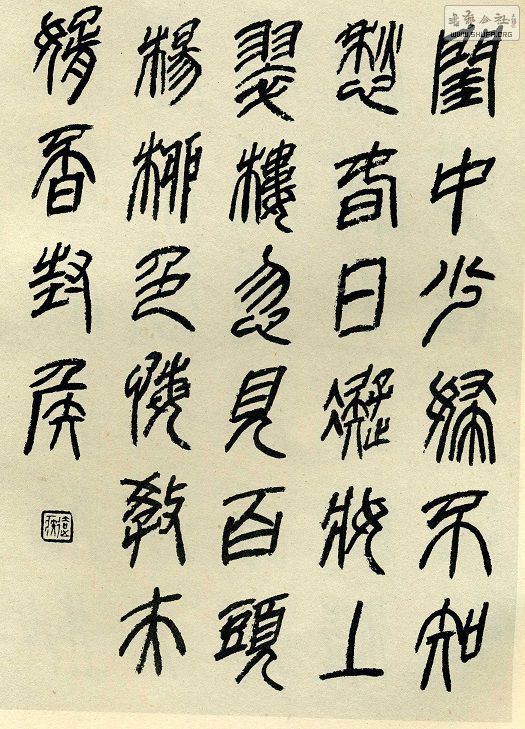 閨中少婦不知
愁春日凝妝上
翠樓忽見百頭
楊柳色悔教夫
婿覓封侯
WWW.SHUFA.ORG